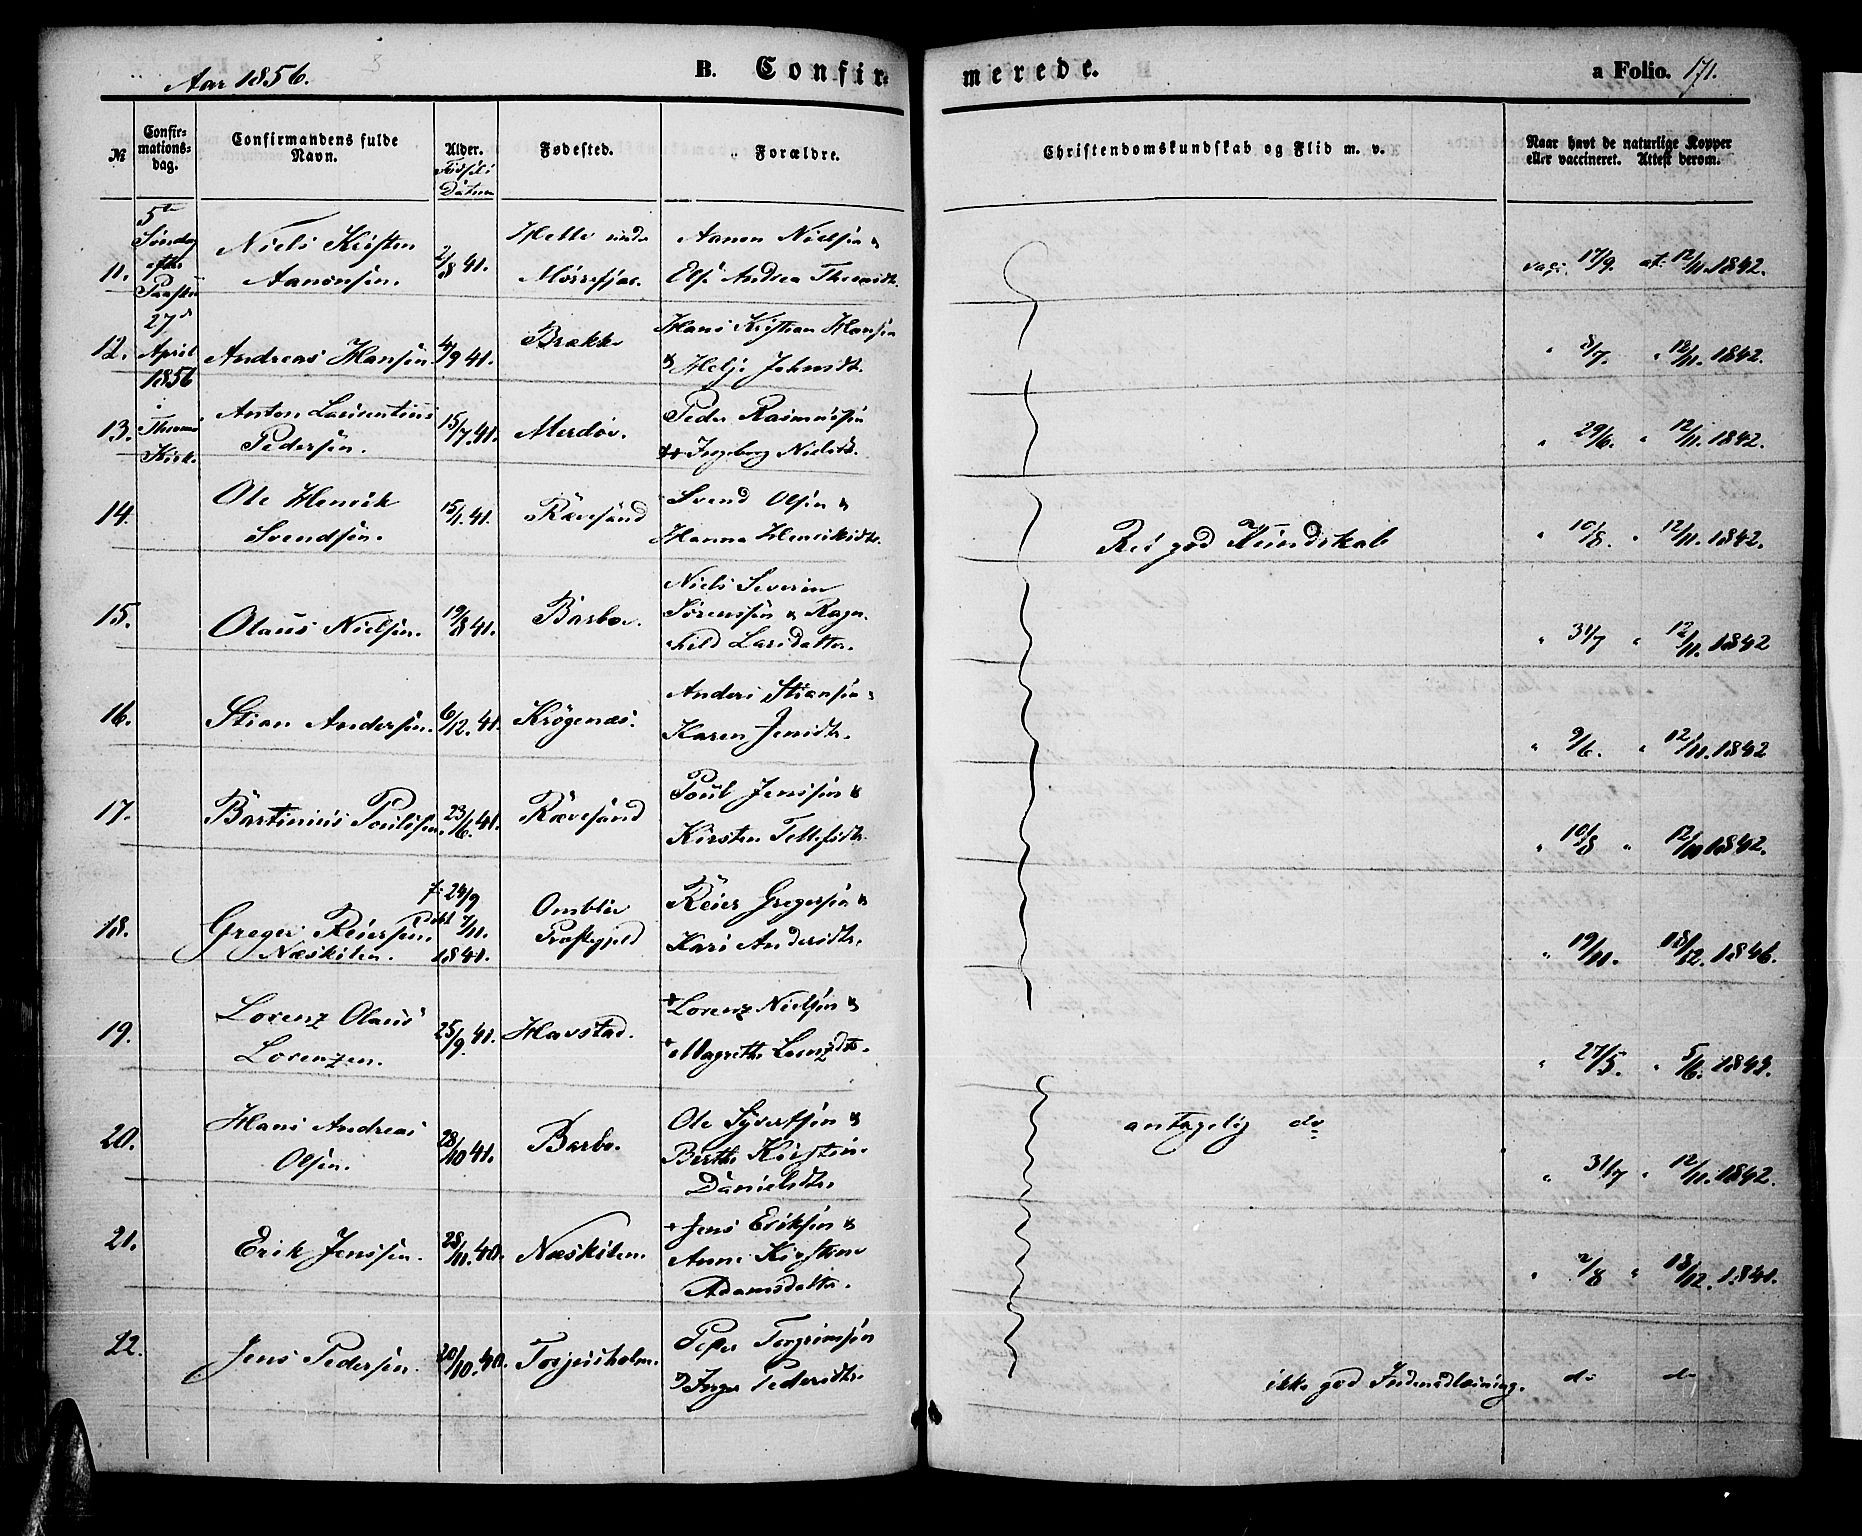 Aar 1856.
B. Confir-
merede.
a Folio. 171.
№
Confir-
mations-
dag.
Confirmandens fulde
Navn.
Alder.
Fødsels
Datum
Fødested.
Forældre.
Christendomskundskab og Flid m. v.
Naar havt de naturlige Kopper
eller vaccineret. Attest derom.
5te
Søndag
efter
Paaske
27de
April
1856
i
Kirke
11.
Niels Kirsten
Aanonsen.
2/8 41.
Helle under
Aanon Nielsen &
Else Andrea
vacc. 17/9. at: 12/11. 1842.
12.
Andreas Hansen
4/9 41.
Brække
Hans Kristian Hansen
& Helje Johnsdtr.
" 8/7. " 12/11. 1842.
13.
Anton Laurentius
Pedersen.
15/7. 41.
Merdøe.
Peder Rasmussen
Ingeborg Nielsdtr.
" 29/6. " 12/11. 1842.
14.
Ole Henrik
Svendsen.
15/1. 41.
Rævesand
Svend Olsen &
Hanna Henriksdtr.
Rel. god Kundskab
" 10/8. " 12/11. 1842.
15.
Olaus Nielsen.
19/8 41.
Barbo.
Niels Severin
Sørenssen & Ragn-
hild Larsdatter.
" 31/7 " 12/11. 1842
16.
Stian Andersen.
6/12. 41.
Krøgenæs.
Anders Stiansen &
Karen Jensdtr.
" 9/6. " 12/11. 1842
17.
Bartinius Poulsen
23/6. 41.
Rævesand
Poul Jenssen &
Kirsten Tellefsdtr.
" 10/8 " 12/11 1842.
18.
Greger Reiersen
Næskilen.
f: 24/9
døbt 7/11.
1841.
Omblie
Præstegjeld
Reier Gregersen &
Kari Andersdtr.
" 19/11. 18/12. 1846.
19.
Lorenz Olaus
Lorenzen.
25/9. 41.
Havstad.
+ Lorenz Nielsen &
Magrethe
" 27/5. " 5/6. 1843.
20.
Hans Andreas
Olsen.
28/10 41.
Barbo.
Ole Syvertsen &
Berthe Kirstine
Danielsdtr.
antagelig do
" 31/7 " 12/11. 1842.
21.
Erik Jenssen.
28/11. 40.
Næskilen.
+ Jens Eriksen &
Anne Kirstine
Adamsdatter.
" 2/8 " 18/12. 1841.
22.
Jens Pedersen.
20/10. 40.
Torjusholm.
Peder Torgrimsen
& Inger Pedersdtr.
ikke god Indenadlæsning.
do do